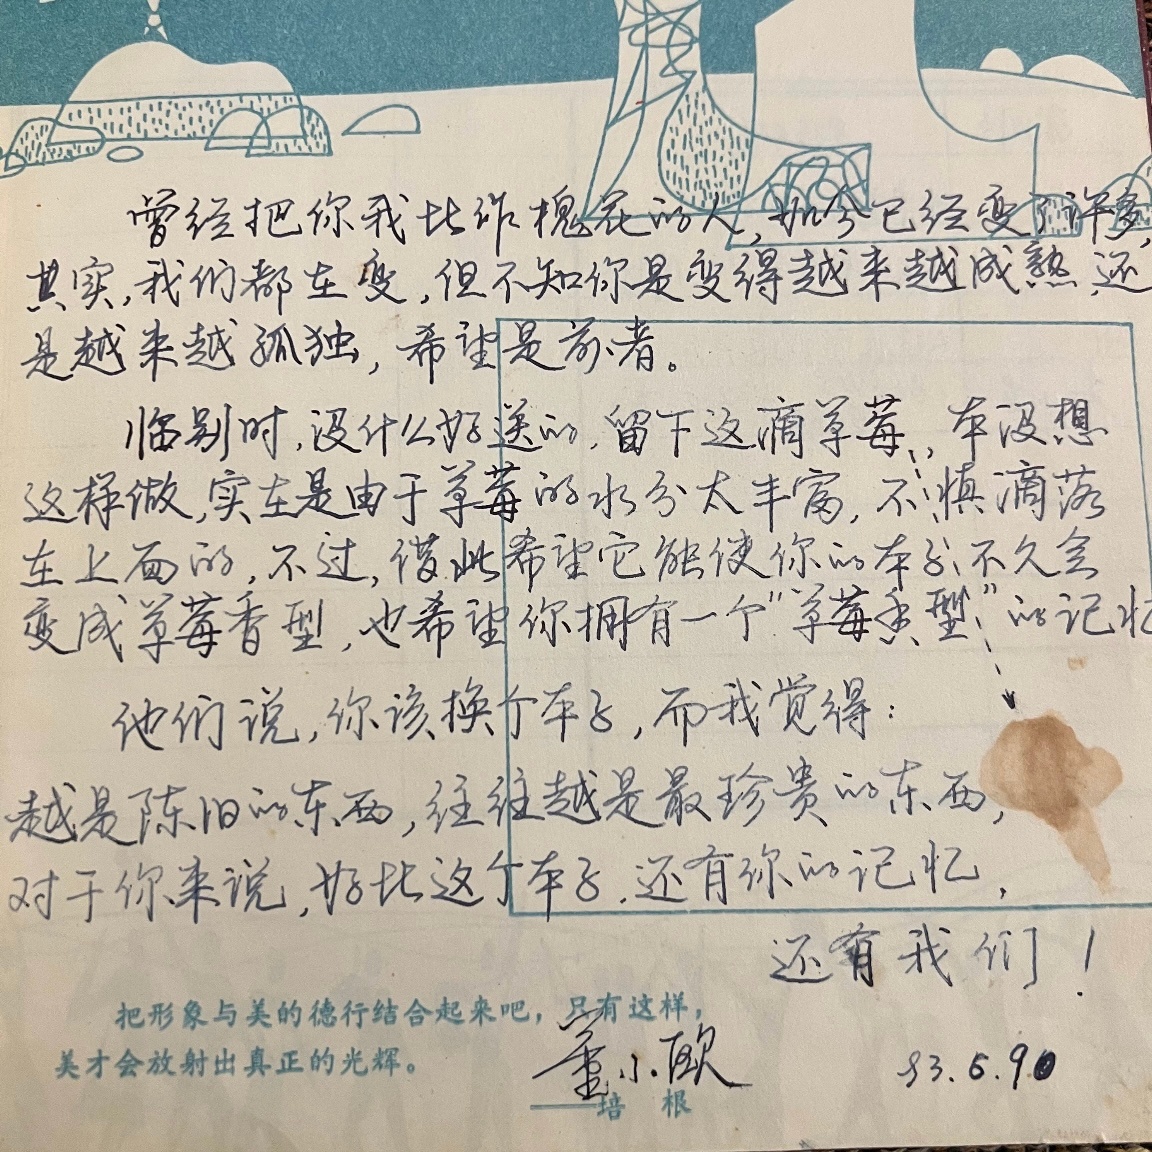 曾经把你我比作槐花的人，如今已经变了许多，
其实，我们都在变，但不知你是变得越来越成熟，还
是越来越孤独，希望是前者。
临别时，没什么好送的，留下这滴草莓，本没想
这样做，实在是由于草莓的水分太丰富，不慎滴落
在上面的，不过，借此希望它能使你的本子不久会
变成草莓香型，也希望你拥有一个“草莓香型”的记忆
他们说，你该换个本子，而我觉得：
越是陈旧的东西，往往越是最珍贵的东西，
对于你来说，好比这个本子，还有你的记忆，
还有我们！
把形象与美的德行结合起来吧，只有这样，
美才会放射出真正的光辉。
——培 根
董小欧 93.6.9